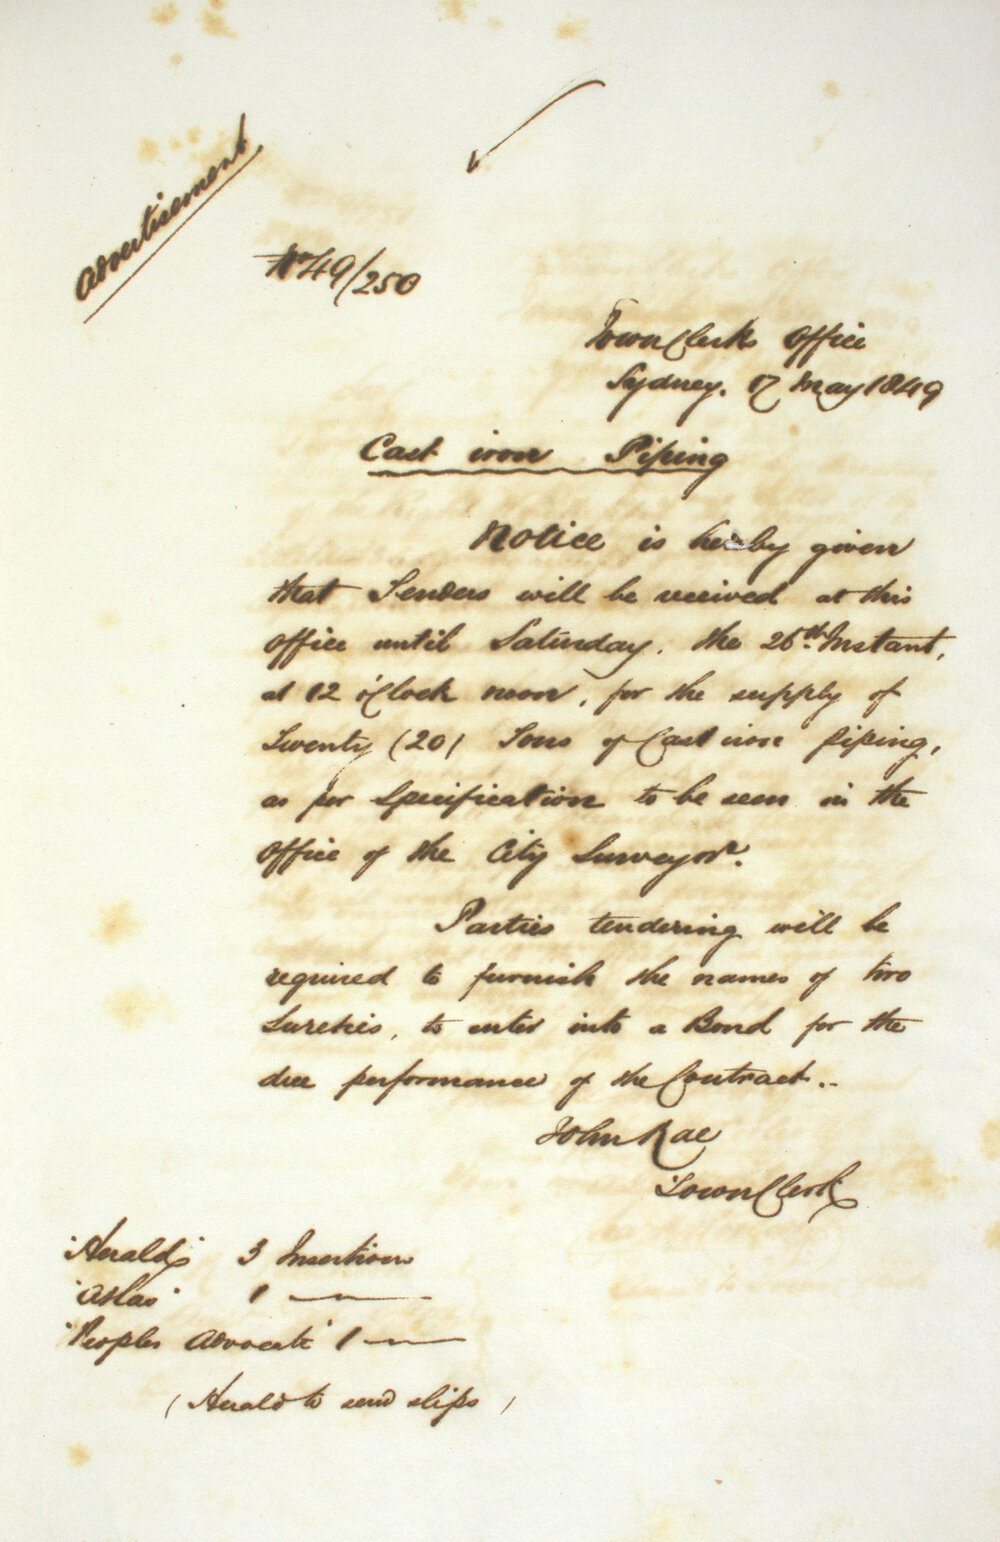 Advertisement
No 49/250
Town Clerks Office
Sydney. 17 May 1849
Cast iron Piping
Notice is hereby given
that Tenders will be received at this
Office until Saturday, the 26th Instant,
at 12 o'Clock noon, for the supply of
Twenty (20) Tons of Cast iron piping,
as per Specification to be seen in the
Office of the City Surveyor.
Parties tendering will be
required to furnish the names of two
Sureties, to enter into a Bond for the
due performance of the Contract..
John Rae
Town Clerk
"Herald" 3 Insertions
"Atlas" 1 —
"Peoples Advocate" 1 —
(Herald to send slips)